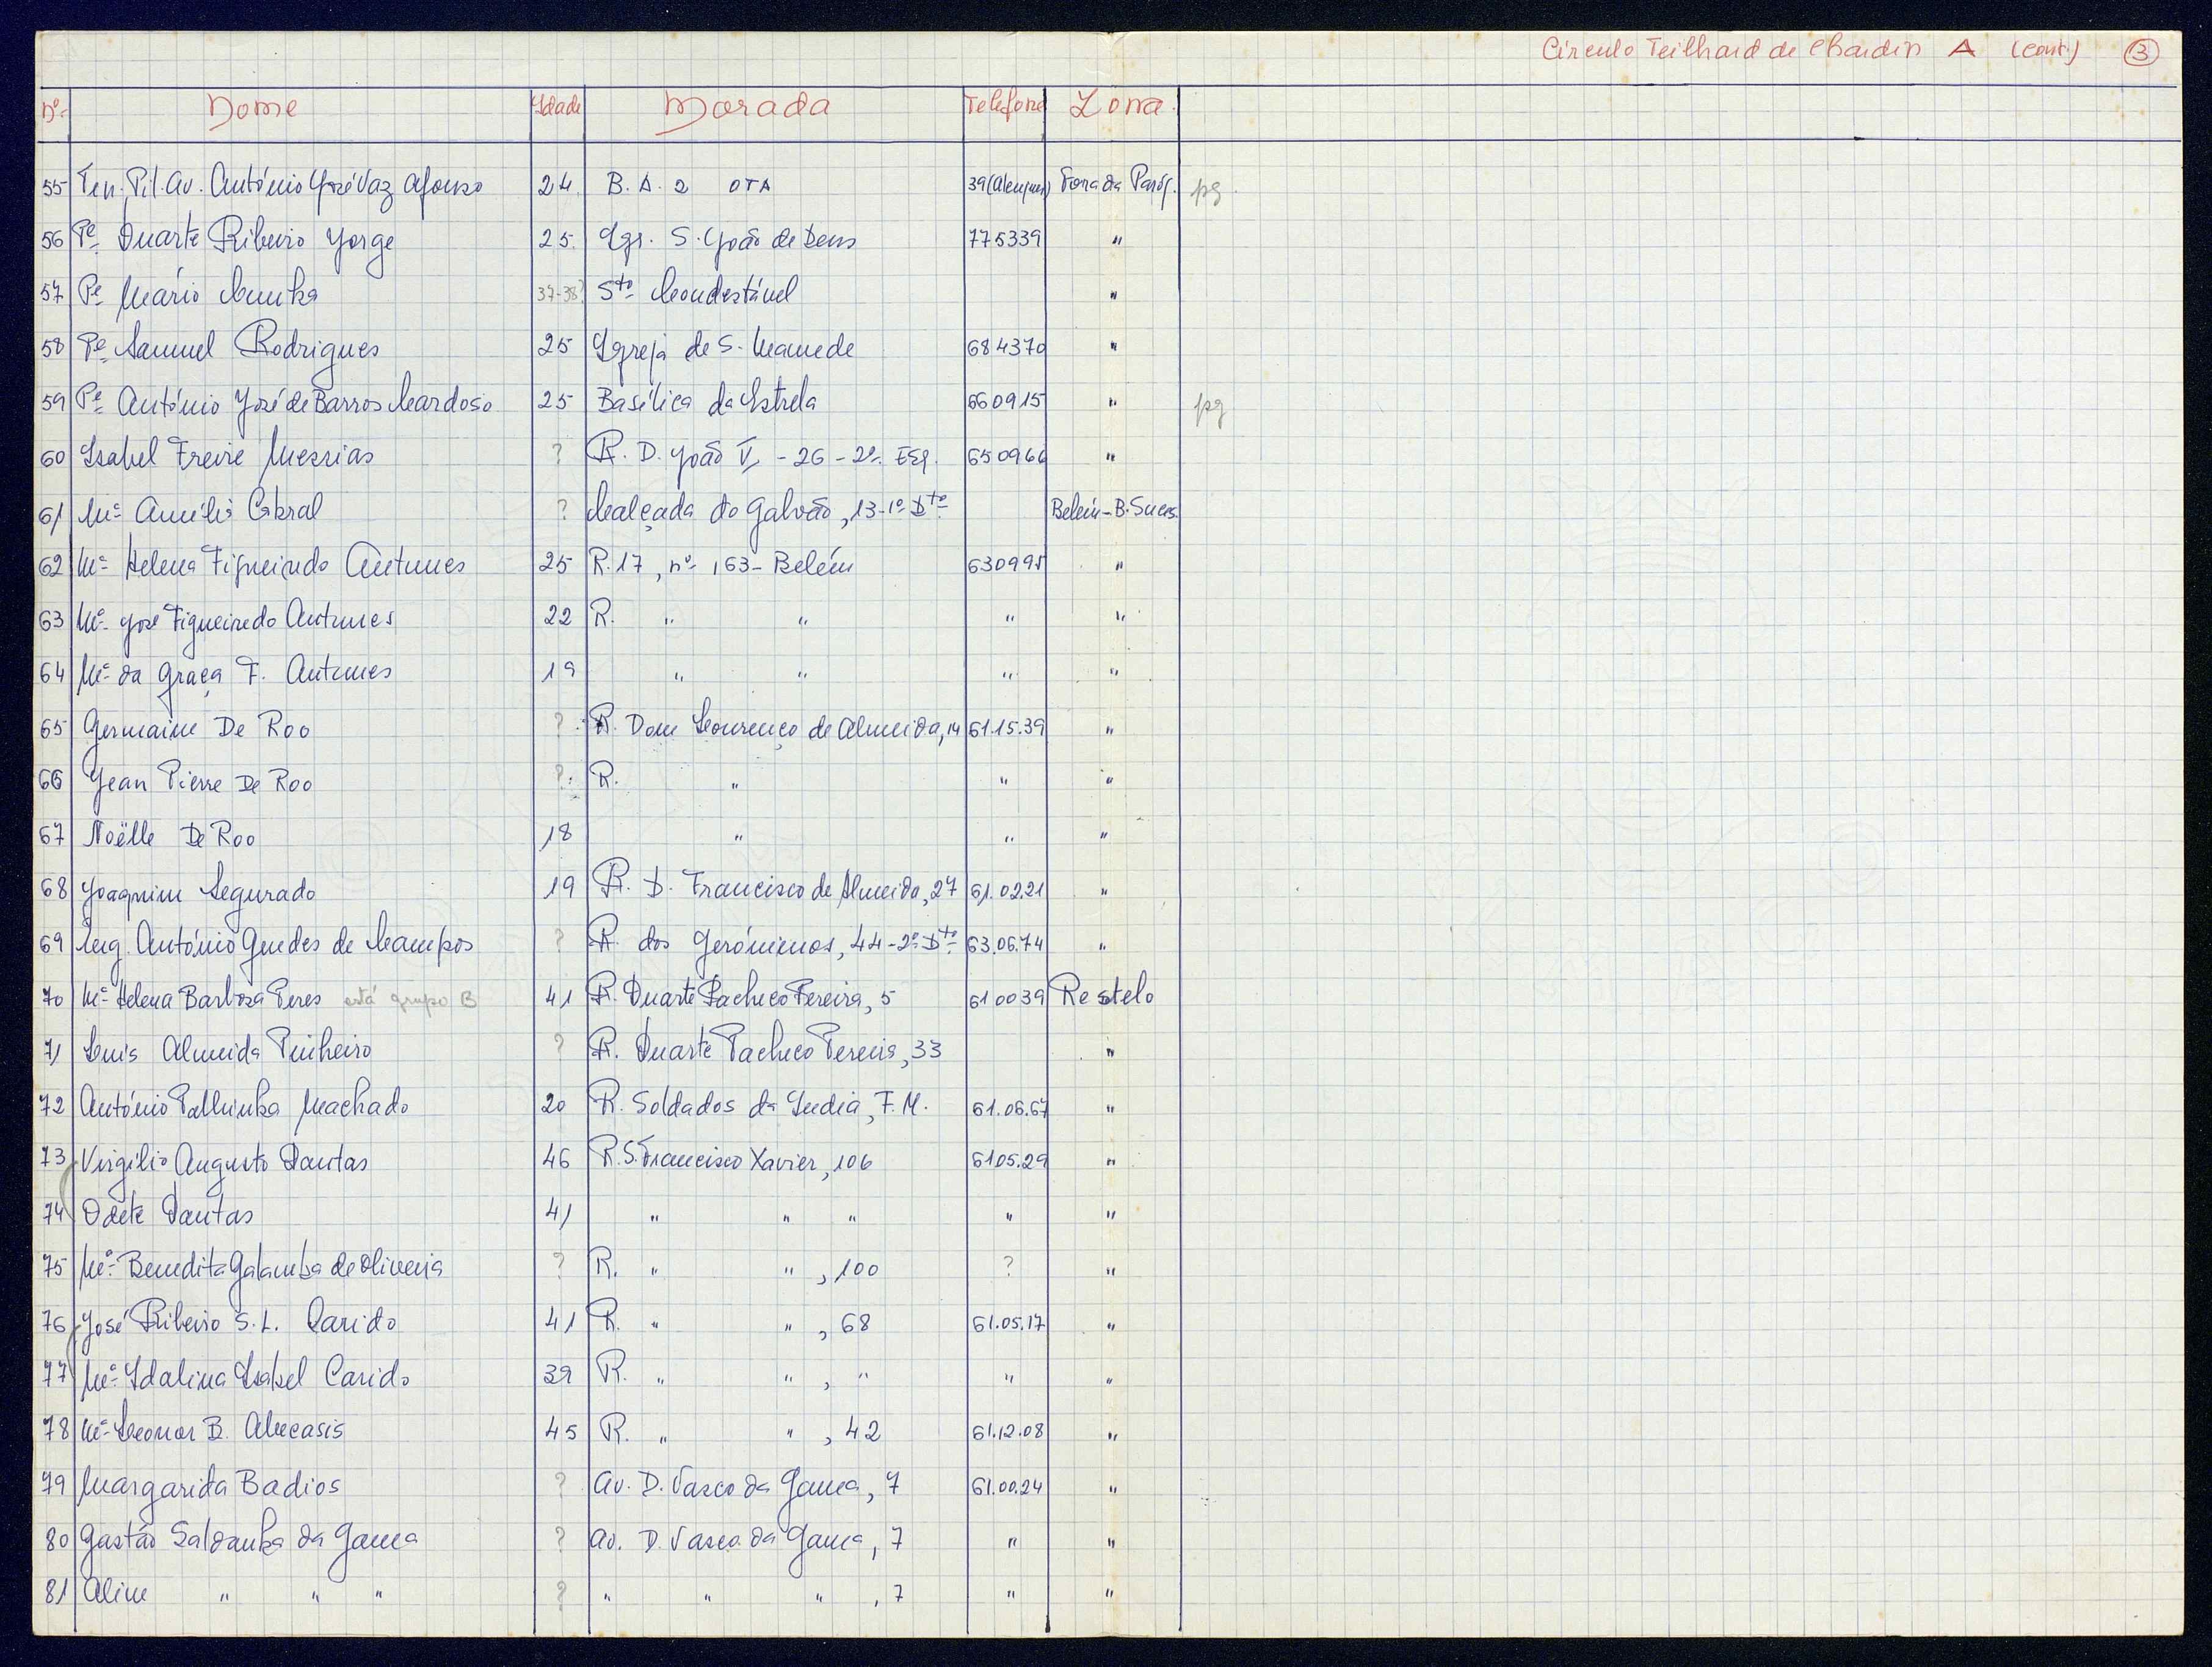 Circulo Teilhard de Chardin A (cont.) 3
Nº Nome Idade Morada Telefone Zona
55 Ten. Pil. Av. António José Vaz Afonso 24 B.A. 2 OTA 39 (Alenquer) Fora da Paróq. pg
56 Pe Duarte Ribeiro Jorge 25 Igr. S. João de Deus 775339 "
57 Pe Mário Cunha 37-38? Sto Condestável "
58 Pe Samuel Rodrigues 25 Igreja de S. Mamede 684370 "
59 Pe António José de Barros Cardoso 25 Basílica da Estrela 660915 " pg
60 Isabel Freire Messias ? R. D. João V, - 26 - 2º Esq. 650966 "
61 Mª Amélia Cabral ? Calçada do Galvão, 13-1º Dto Belém-B. Suces.
62 Mª Helena Figueiredo Antunes 25 R. 17, nº 163 - Belém 630995 "
63 Mª José Figueiredo Antunes 22 R. " " " "
64 Mª da Graça F. Antunes 19 " " " "
65 Germaine De Roo ? R. Dom Lourenço de Almeida, 14 61.15.39 "
66 Jean Pierre De Roo ? R. " " "
67 Noëlle De Roo 18 " " "
68 Joaquim Segurado 19 R. D. Francisco de Almeida, 27 61.02.21 "
69 Eng. António Guedes de Campos ? R. dos Gerónimos, 44-2º Dto 63.06.74 "
70 Mª Helena Barbosa Peres está grupo B 41 R. Duarte Pacheco Pereira, 5 610039 Restelo
71 Luis Almeida Pinheiro ? R. Duarte Pacheco Pereira, 33 "
72 António Palhinha Machado 20 R. Soldados da India, F.M. 61.06.67 "
73 Virgílio Augusto Dantas 46 R. S. Francisco Xavier, 106 6105.29 "
74 Odete Dantas 41 " " " " "
75 Mª Benedita Galamba de Oliveira ? R. " " , 100 ? "
76 José Ribeiro S. L. Carido 41 R. " " , 68 61.05.17 "
77 Mª Idalina Isabel Carido 39 R. " " , " " "
78 Mª Leonor B. Abecasis 45 R. " " , 42 61.12.08 "
79 Margarida Badios ? Av. D. Vasco da Gama, 7 61.00.24 "
80 Gastão Saldanha da Gama ? Av. D. Vasco da Gama, 7 " "
81 Aline " " " ? " " " , 7 " "